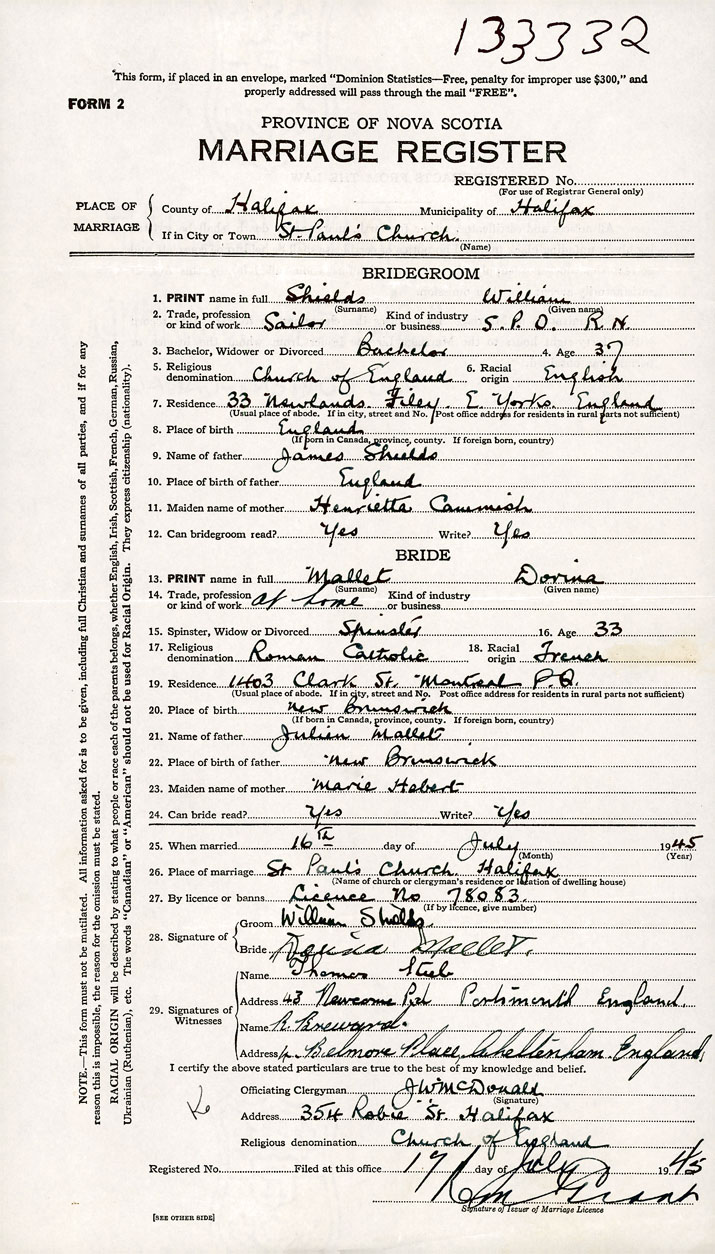 133332
"This form, if placed in an envelope, marked "Dominion Statistics—Free, penalty for improper use $300," and
properly addressed will pass through the mail "FREE".
FORM 2
PROVINCE OF NOVA SCOTIA
MARRIAGE REGISTER
REGISTERED No.
(For use of Registrar General only)
PLACE OF MARRIAGE
County of Halifax Municipality of Halifax
If in City or Town St. Paul's Church.
(Name)
BRIDEGROOM
1. PRINT name in full Shields William
(Surname) (Given name)
2. Trade, profession or kind of work Sailor Kind of industry or business S. P. O. R. N.
3. Bachelor, Widower or Divorced Bachelor 4. Age 37
5. Religious denomination Church of England 6. Racial origin English
7. Residence 33 Newlands Filey E. Yorks. England
(Usual place of abode. If in city, street and No. Post office address for residents in rural parts not sufficient)
8. Place of birth England
(If born in Canada, province, county. If foreign born, country)
9. Name of father James Shields
10. Place of birth of father England
11. Maiden name of mother Henrietta
12. Can bridegroom read? Yes Write? Yes
BRIDE
13. PRINT name in full Mallet Dorina
(Surname) (Given name)
14. Trade, profession or kind of work at home Kind of industry or business
15. Spinster, Widow or Divorced Spinster 16. Age 33
17. Religious denomination Roman Catholic 18. Racial origin French
19. Residence 1403 Clark St. Montreal P.Q.
(Usual place of abode. If in city, street and No. Post office address for residents in rural parts not sufficient)
20. Place of birth New Brunswick
(If born in Canada, province, county. If foreign born, country)
21. Name of father Julien Mallet
22. Place of birth of father New Brunswick
23. Maiden name of mother Marie Hebert
24. Can bride read? Yes Write? Yes
25. When married 16th day of July 1945
(Month) (Year)
26. Place of marriage St Paul's Church Halifax
(Name of church or clergyman's residence or location of dwelling house)
27. By licence or banns Licence No 78083.
(If by licence, give number)
28. Signature of
Groom William Shields.
Bride Dorina Mallet.
29. Signatures of Witnesses
Name Thomas
Address 43 Newcome Rd Portsmouth England.
Name R. Breward.
Address 4. Belmore Place, Cheltenham. England.
I certify the above stated particulars are true to the best of my knowledge and belief.
Officiating Clergyman JW McDonald
(Signature)
Address 354 Robie St. Halifax
Religious denomination Church of England
Registered No. Filed at this office 17 day of July 1945
Signature of Issuer of Marriage Licence
[SEE OTHER SIDE]
NOTE.—This form must not be mutilated. All information asked for is to be given, including full Christian and surnames of all parties, and if for any
reason this is impossible, the reason for the omission must be stated.
RACIAL ORIGIN will be described by stating to what people or race each of the parents belongs, whether English, Irish, Scottish, French, German, Russian,
Ukrainian (Ruthenian), etc. The words "Canadian" or "American" should not be used for Racial Origin. They express citizenship (nationality).